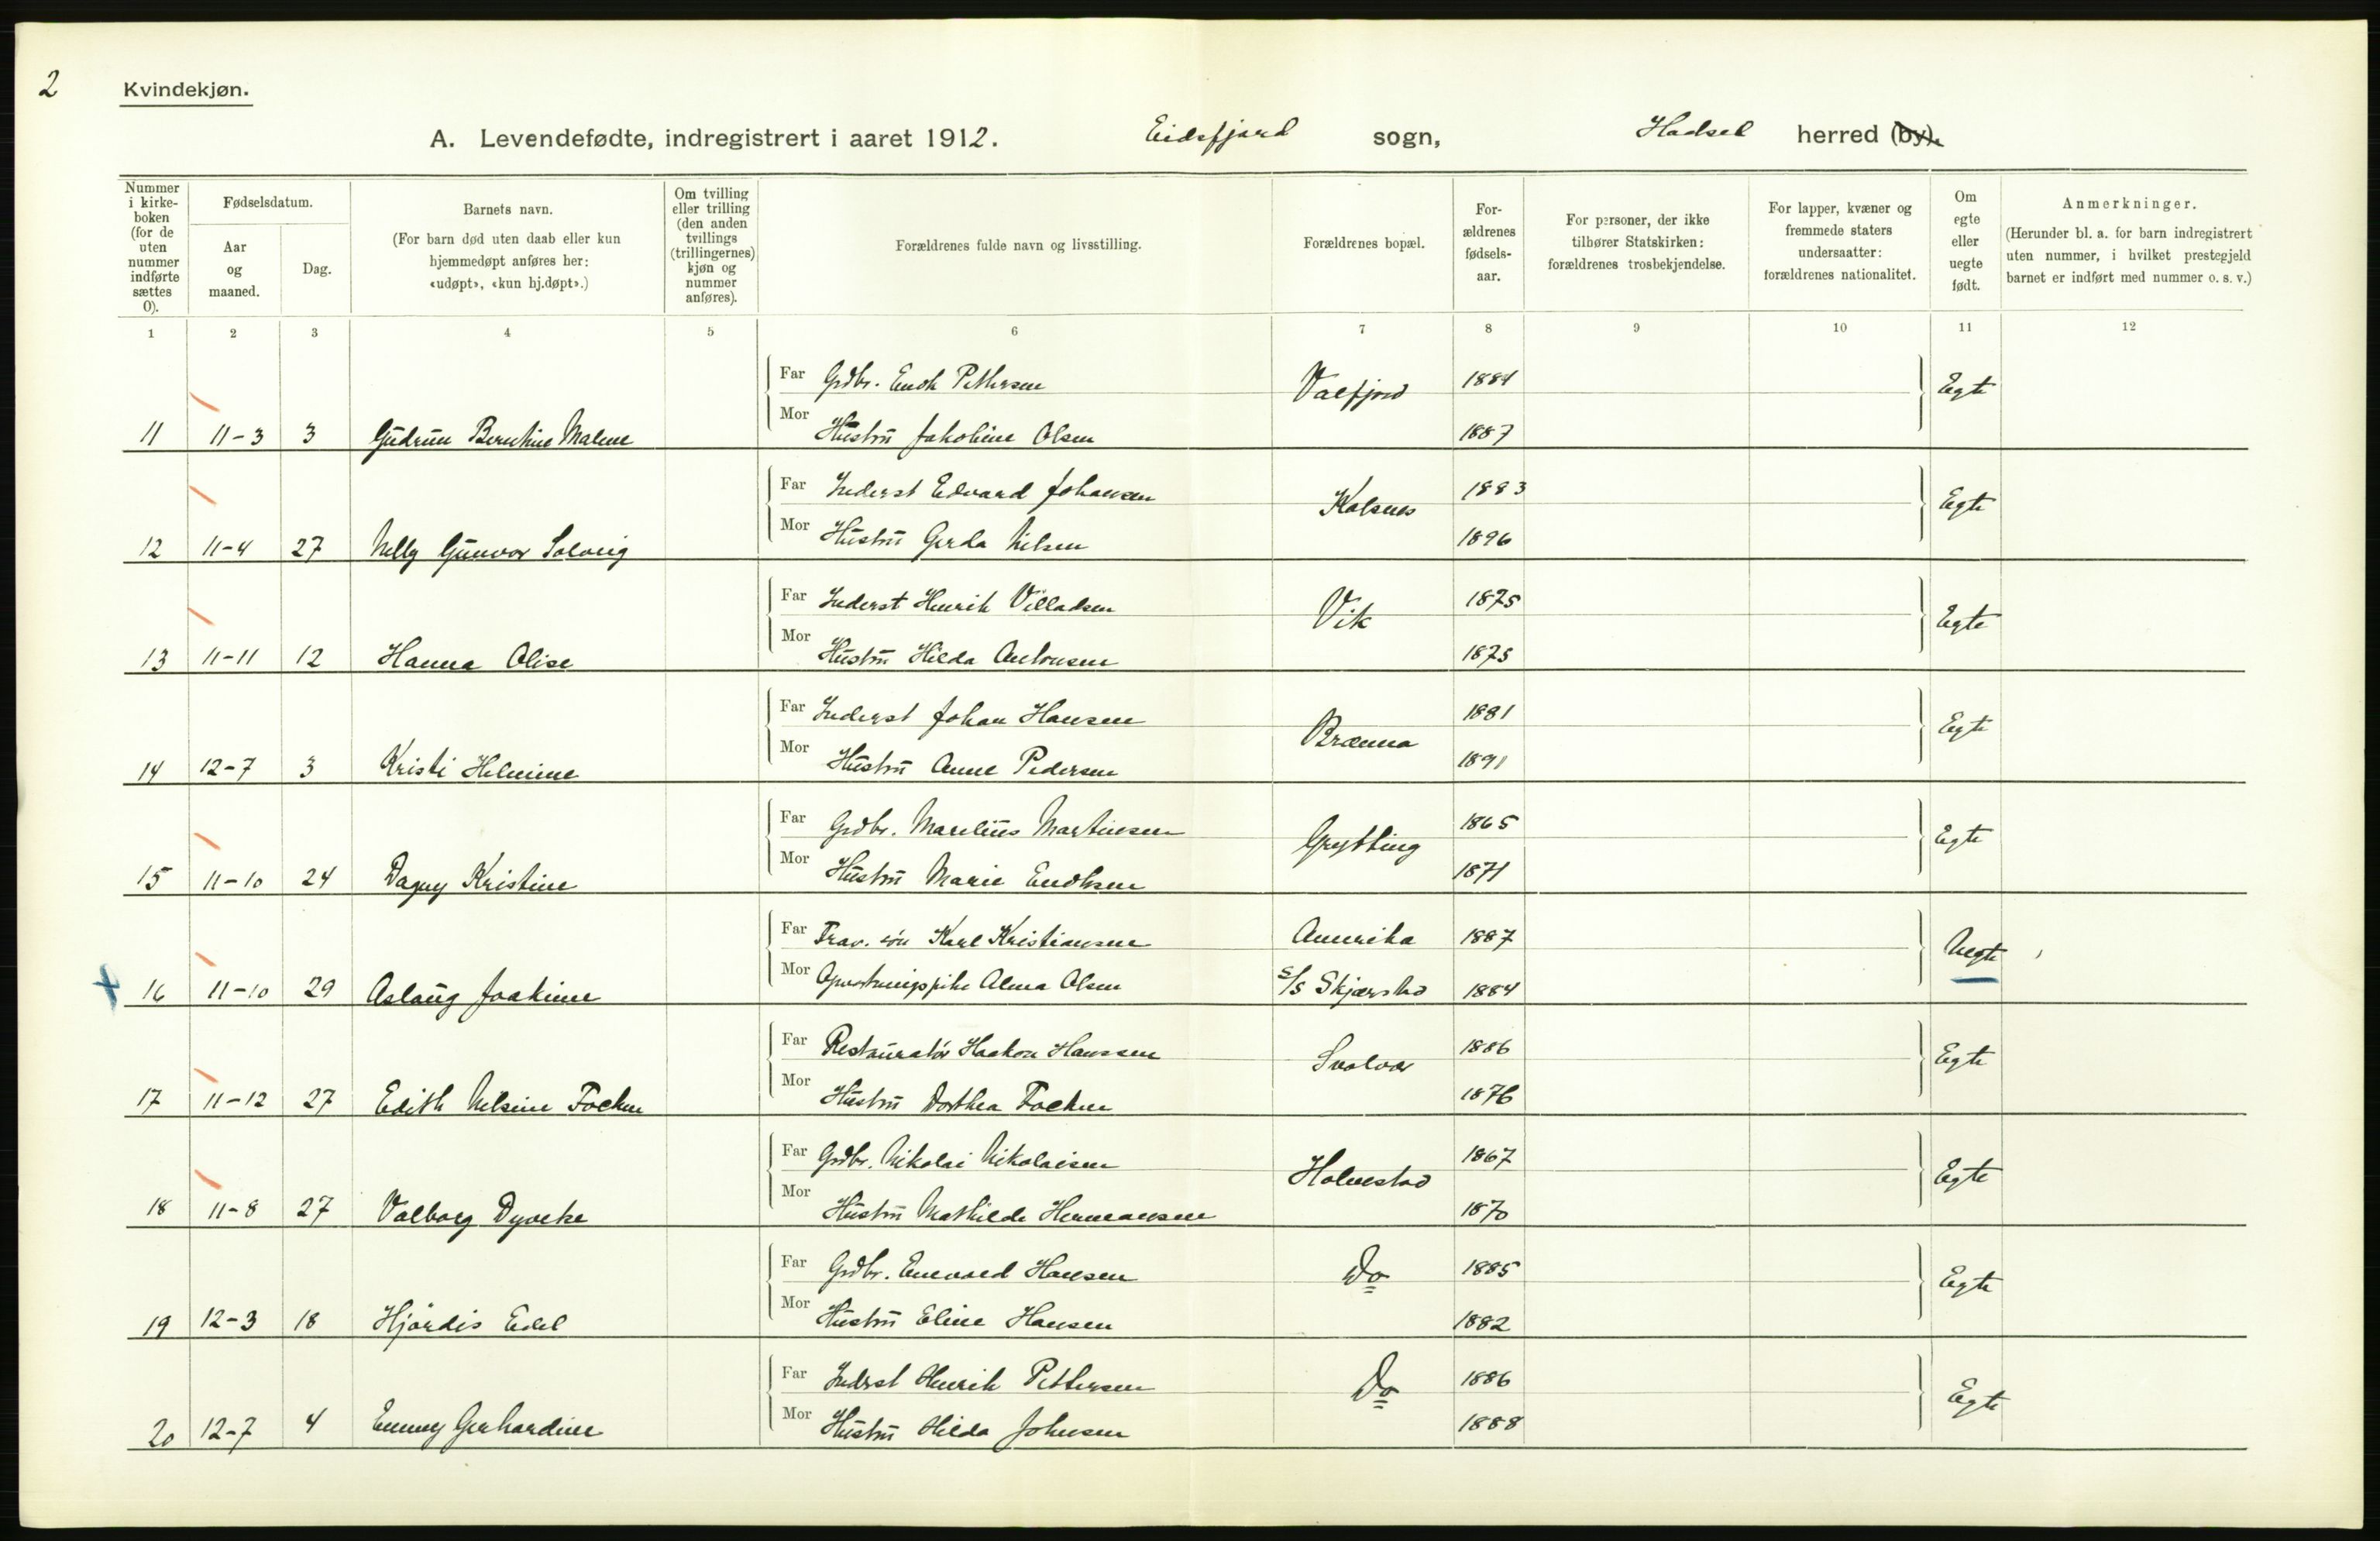 2
Kvindekjøn.
A. Levendefødte, indregistrert i aaret 1912. Eidsfjord sogn, Hadsel herred (by).
Nummer i kirke- boken (for de uten nummer indførte sættes 0).
Fødselsdatum.
Aar og maaned.
Dag.
Barnets navn.
(For barn død uten daab eller kun hjemmedøpt anføres her: «udøpt», «kun hj.døpt».)
Om tvilling eller trilling (den anden tvillings (trillingernes) kjøn og nummer anføres).
Forældrenes fulde navn og livsstilling.
Forældrenes bopæl.
For- ældrenes fødsels- aar.
For personer, der ikke tilhører Statskirken: forældrenes trosbekjendelse.
For lapper, kvæner og fremmede staters undersaatter: forældrenes nationalitet.
Om egte eller uegte født.
Anmerkninger.
(Herunder bl. a. for barn indregistrert uten nummer, i hvilket prestegjeld barnet er indført med nummer o. s. v.)
1 2 3 4 5 6 7 8 9 10 11 12
Far Grdbr. Enok Pettersen Valfjord 1884 Egte
11 11-3 3 Gudrun Berntine Malene Mor Hustru Jakobine Olsen 1887
Far Inderst Edvard Johansen Kalsnes 1883 Egte
12 11-4 27 Nelly Gunvor Solveig Mor Hustru Gerda Nilsen 1896
Far Inderst Henrik Villadsen Vik 1875 Egte
13 11-11 12 Hanna Olise Mor Hustru Hilda Antonsen 1875
Far Inderst Johan Hansen Brænna 1881 Egte
14 12-7 3 Kristi Helmine Mor Hustru Anne Pedersen 1891
Far Grdbr. Marelius Martinsen Grytting 1865 Egte
15 11-10 24 Dagny Kristine Mor Hustru Marie Enoksen 1871
Far Frav. søn Karl Kristiansen Amerika 1887 Uegte
16 11-10 29 Aslaug Joakime Mor Opvartningspike Alma Olsen S/S Skjærstad 1884
Far Restauratør Haakon Hanssen Svolvær 1886 Egte
17 11-12 27 Edith Nilsine Focken Mor Hustru Dorthea Focken 1876
Far Grdbr. Nikolai Nikolaisen Holmstad 1867 Egte
18 11-8 27 Valborg Dyveke Mor Hustru Mathilde Hermansen 1870
Far Grdbr. Enevold Hansen Do 1885 Egte
19 12-3 18 Hjördis Edel Mor Hustru Eline Hansen 1882
Far Inderst Henrik Pettersen Do 1886 Egte
20 12-7 4 Emmy Gerhardine Mor Hustru Hilda Johnsen 1888